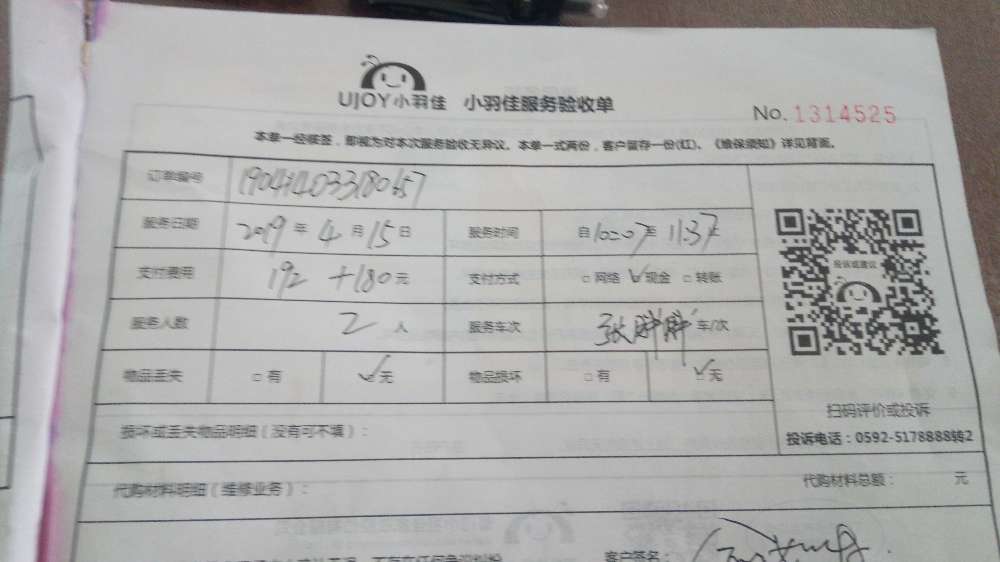 UJOY小羽佳 小羽佳服务验收单
No. 1314525
本单一经核签，即视为对本次服务验收无异议。本单一式两份，客户留存一份(红)。《维保须知》详见背面。
订单编号
服务日期 2019 年 4 月 15 日 服务时间 自 10:07 至 11:37
支付费用 192 +180 元 支付方式 □ 网络 ✓ 现金 □ 转账
投诉或建议
服务人数 2 人 服务车次 张胖胖 车/次
物品丢失 □ 有 ✓ 无 物品损坏 □ 有 ✓ 无
扫码评价或投诉
损坏或丢失物品明细（没有可不填）：
投诉电话：0592-5178888转2
代购材料明细（维修业务）： 代购材料总额： 元
客户签名：